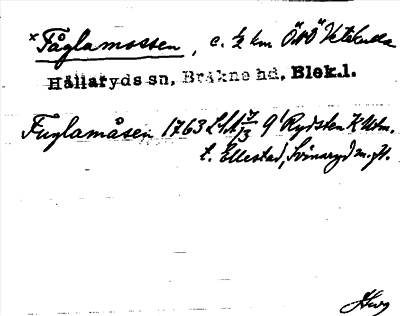 ×Fåglamossen, c. ½ km ÖNÖ Vetekulla
Hallaryds sn, Bräkne hd, Blek.l.
Fuglamåsen 1763 7/3 9' Rydsten K Utm.
t. Ellestad, Svinaryd m.fl.